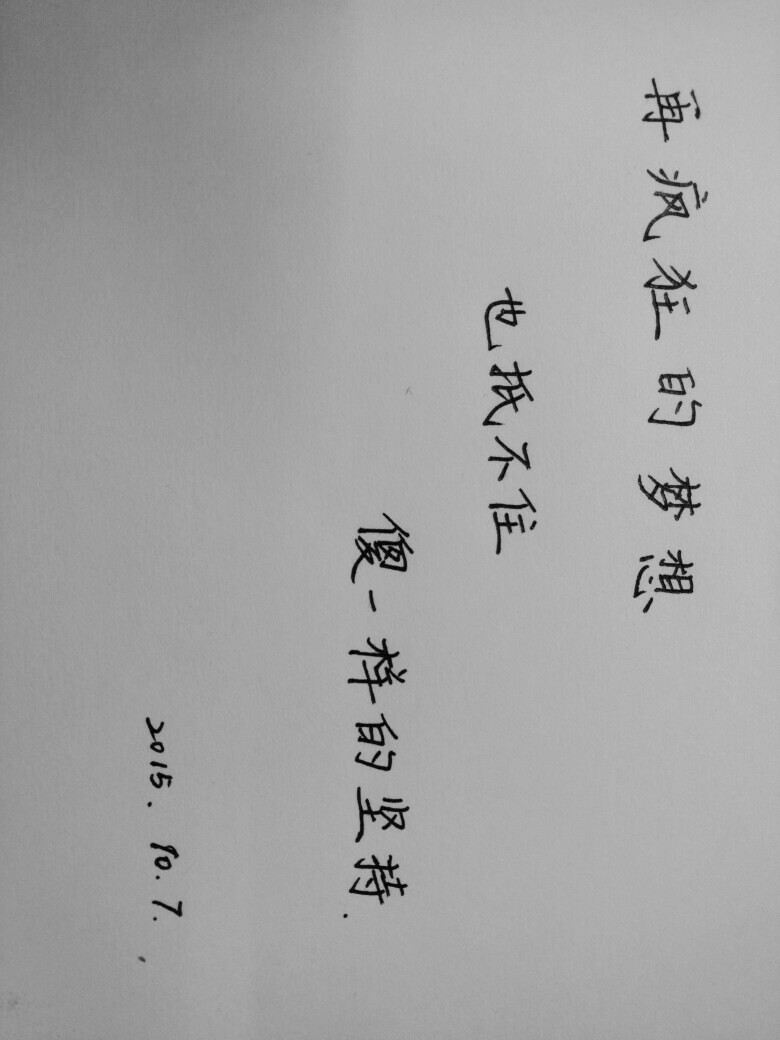 再疯狂的梦想
也抵不住
傻一样的坚持.
2015. 10. 7.